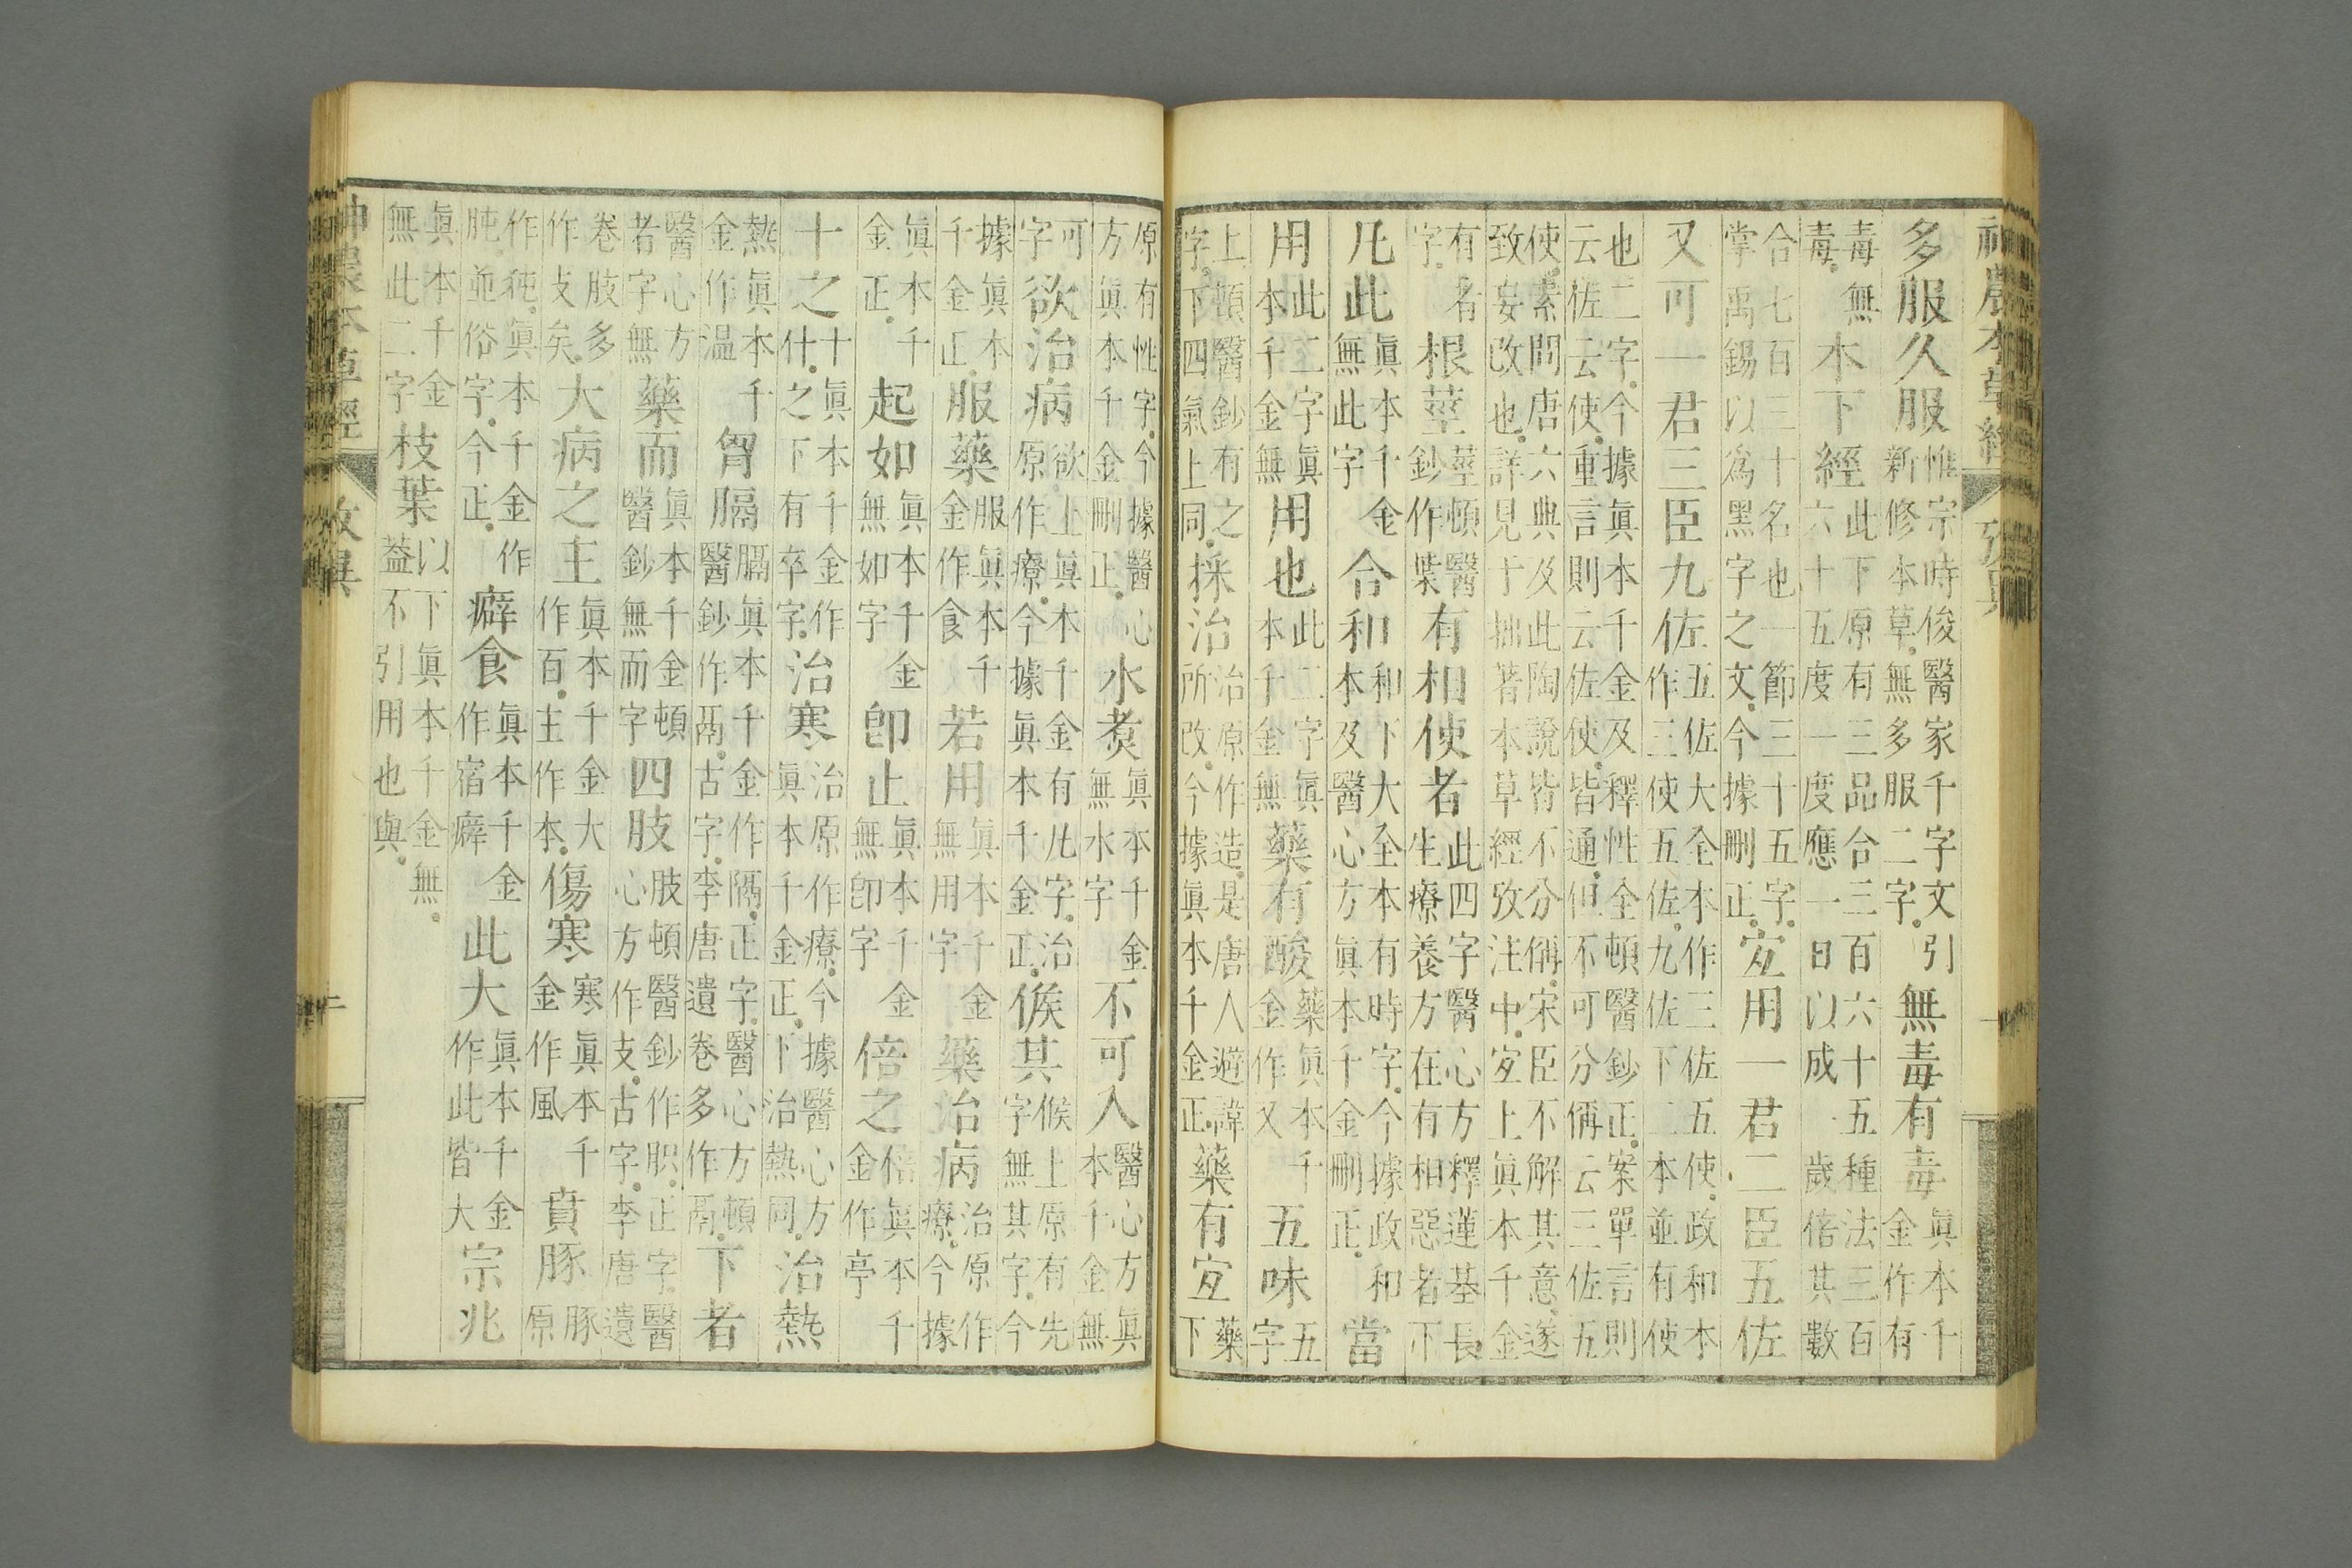 神農本草經 攷異 一
多服久服惟宗時俊醫家千字文引新修本草。無多服二字。無毒有毒眞本千金作有
毒無毒。本下經此下原有三品合三百六十五種法三百六十五度一度應一日以成一歲倍其數
合七百三十名也一節三十五字。掌禹錫以爲黑字之文。今據刪正。冝用一君二臣五佐
又可一君三臣九佐五佐大全本作三佐五使。政和本作三使五佐。九佐下二本並有使
也二字。今據眞本千金及釋性全頓醫鈔正。案單言則云佐云使。重言則云佐使。皆通。但不可分偁云三佐五
使。素問唐六典及此陶說皆不分偁。宋臣不解其意。遂致妄改也。詳見于拙著本草經攷注中。冝上眞本千金
有者字。根莖莖頓醫鈔作葉有相使者此四字醫心方釋蓮基長生療養方在有相惡者下
凡此眞本千金無此字合和和下大全本有時字。今據政和本及醫心方眞本千金刪正。當
用此二字眞本千金無用也此二字眞本千金無藥有酸藥眞本千金作又五味五字
上頓醫鈔有之字。下四氣上同。採治治原作造。是唐人避諱所改。今據眞本千金正藥有冝藥下
原有性字。今據醫心方眞本千金刪正。水煑眞本千金無水字不可入醫心方眞本千金無
可字欲治病欲上眞本千金有凡字。治原作療。今據眞本千金正。候其候上原有先字無其字。今
據眞本千金正。服藥服眞本千金作食若用眞本千金無用字藥治病治原作療。今據
眞本千金正。起如眞本千金無如字卽止眞本千金無卽字倍之倍眞本千金作亭
十之十眞本千金作什。之下有卒字。治寒治原作療。今據醫心方眞本千金正。下治熱同。治熱
熱眞本千金作温胷膈膈眞本千金作隔。正字。醫心方頓醫鈔作鬲。古字。李唐遺卷多作鬲。下者
醫心方無者字藥而眞本千金頓醫鈔無而字四肢肢頓醫鈔作胑。正字。醫心方作支。古字。李唐遺
卷肢多作支矣。大病之主眞本千金大作百。主作本。傷寒寒眞本千金作風賁豚豚原
作㹠。眞本千金作肫。並俗字。今正。癖食眞本千金作宿癖此大眞本千金作此皆大宗兆
眞本千金無此二字枝葉以下眞本千金無。葢不引用也與。
神農本草經 攷異 二